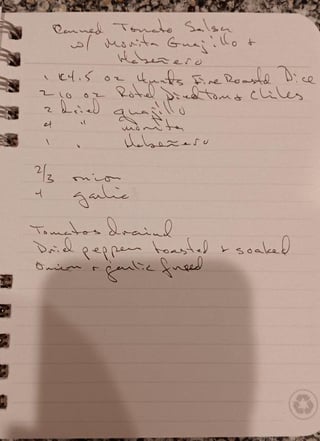 Canned Tomato Salsa
w/ Morita Guajillo +
Habeñero
1 14.5 oz Hunts Fire Roast Dice
2 10 oz Rotel Diced Toms + Chiles
2 dried guajillo
4 " morita
1 " Habeñero
2/3 onion
4 garlic
Tomatos draind
Dried peppers toasted + soaked
Onion + garlic fried